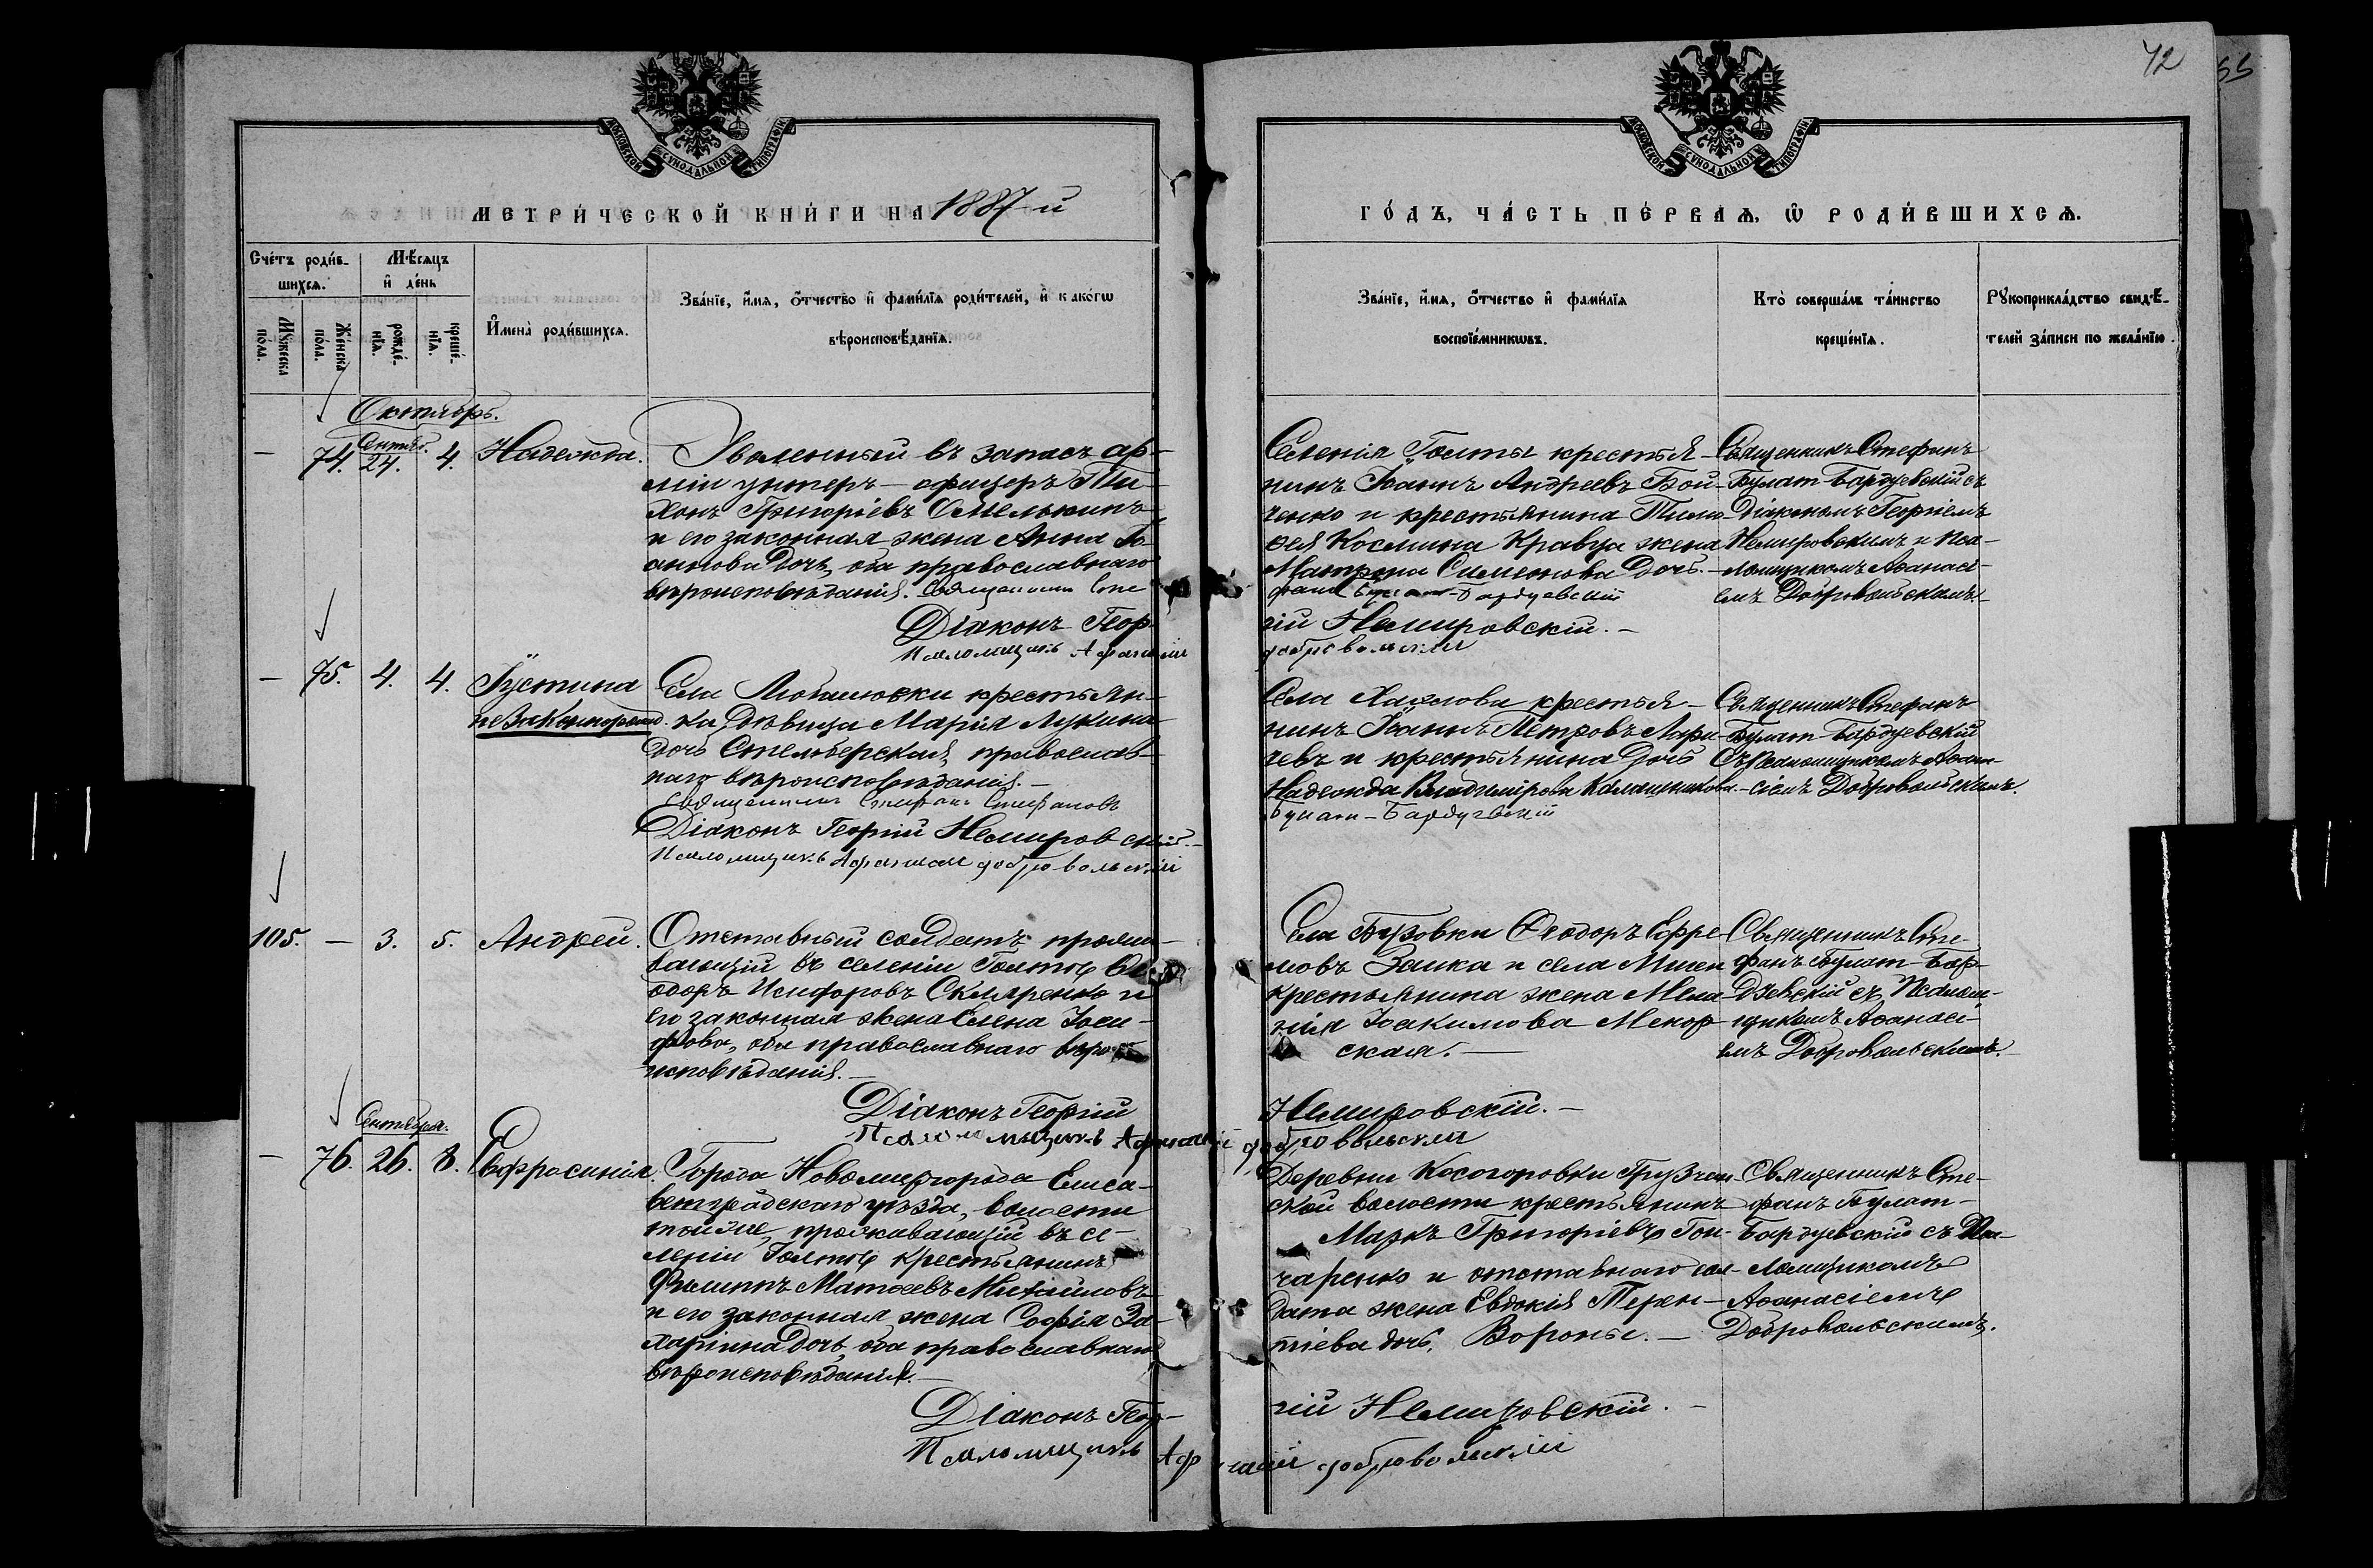 42
55
МОСКОВСКОЙ СѴНОДАЛЬНОЙ ТИПОГРАФІИ
МОСКОВСКОЙ СѴНОДАЛЬНОЙ ТИПОГРАФІИ
МЕТРИ́ЧЕСКОЙ КНИ́ГИ НА 1887-й
ГО́ДЪ, ЧА́СТЬ ПЕ́РВАѦ, Ѡ РОДИ́ВШИХСѦ.
Сче́тъ роди́в-
шихсѧ.
Мꙋ́жеска по́ла.
Же́нска по́ла.
Мѣ́сѧцъ
и҆ де́нь
рожде́-
нїѧ.
креще́-
нїѧ.
И҆мена̀ роди́вшихсѧ.
Зва́нїе, и҆́мѧ, ѻ҆́тчество и҆ фами́лїѧ роди́телей, и҆ како́гѡ
вѣроисповѣ́данїѧ.
Зва́нїе, и҆́мѧ, ѻ҆́тчество и҆ фами́лїѧ
воспрїе́мникѡвъ.
Кто̀ соверша́лъ та́инство
креще́нїѧ.
Рꙋкоприкла́дство свидѣ́-
телей за́писи по жела́нїю.
Октябрь.
— 74. Сентяб. 24. 4. Надежда.
Уволенный въ запасъ ар-
міи унтеръ-офицеръ Ти-
хонъ Григорьевъ Омелькинъ
и его законная жена Анна Іо-
аннова дочь, оба православнаго
вѣроисповѣданія. Священникъ Сте
Діаконъ Геор-
Псаломщикъ Афанасій
Селенія Голты крестья-
нинъ Іоаннъ Андреевъ Бой-
ченко и крестьянина Тимо-
ѳея Космина Кравца жена
Матрона Симеонова дочь.—
фанъ Булат-Бардуевскій
гій Немировскій.—
Добровольскій
Священникъ Стефанъ
Булат-Бардуевскій съ
Діакономъ Георгіемъ
Немировскимъ и Пса-
ломщикомъ Аѳанасі-
емъ Добровольскимъ.
— 75. 4. 4. Іустина
незаконорожд.
Села крестьян-
ка дѣвица Марія Лукина
дочь православ-
наго вѣроисповѣданія.—
Священникъ Стефанъ Стефановъ
Діаконъ Георгій Немировскій.—
Псаломщикъ Афанасій Добровольскій
Села крестья-
нинъ Іоаннъ Петровъ Лари-
чевъ и крестьянина дочь
Надежда Владимірова Калашникова.—
Булат-Бардуевскій
Священникъ Стефанъ
Булат-Бардуевскій
съ Псаломщикомъ Аѳана-
сіемъ Добровольскимъ.
105. — 3. 5. Андрей.
Отставный солдатъ прожи-
вающій въ селеніи Голтѣ Ѳе-
одоръ Никифоровъ Скляренко и
его законная жена Елена Іоси-
фова, оба православнаго вѣро-
исповѣданія.—
Діаконъ Георгій
Псаломщикъ Афанасій
Села Бузовки Ѳеодоръ Ефре-
мовъ Заика и села
крестьянина жена Мела-
нія Іоакимова
ская.—
Немировскій.—
Добровольскій
Священникъ Сте-
фанъ Булат-Бар-
дуевскій съ Псалом-
щикомъ Аѳанасі-
емъ Добровольскимъ.
Сентября.
— 76. 26. 8. Евфросинія.
Города Новомиргорода Елиса-
ветградскаго уѣзда, волости
тойже, проживающій въ се-
леніи Голтѣ крестьянинъ
Филиппъ Матѳеевъ Михайловъ
и его законная жена Софія За-
харіина дочь, оба православнаго
вѣроисповѣданія.—
Діаконъ Геор-
Псаломщикъ Афанасій
Деревни Косогоровки
ской волости крестьянинъ
Маркъ Григорьевъ Гон-
чаренко и отставнаго сол-
дата жена Евдокія Терен-
тіева дочь, Вороны.—
гій Немировскій.—
Добровольскій
Священникъ Сте-
фанъ Булат-
Бардуевскій съ Пса-
ломщикомъ
Аѳанасіемъ
Добровольскимъ.